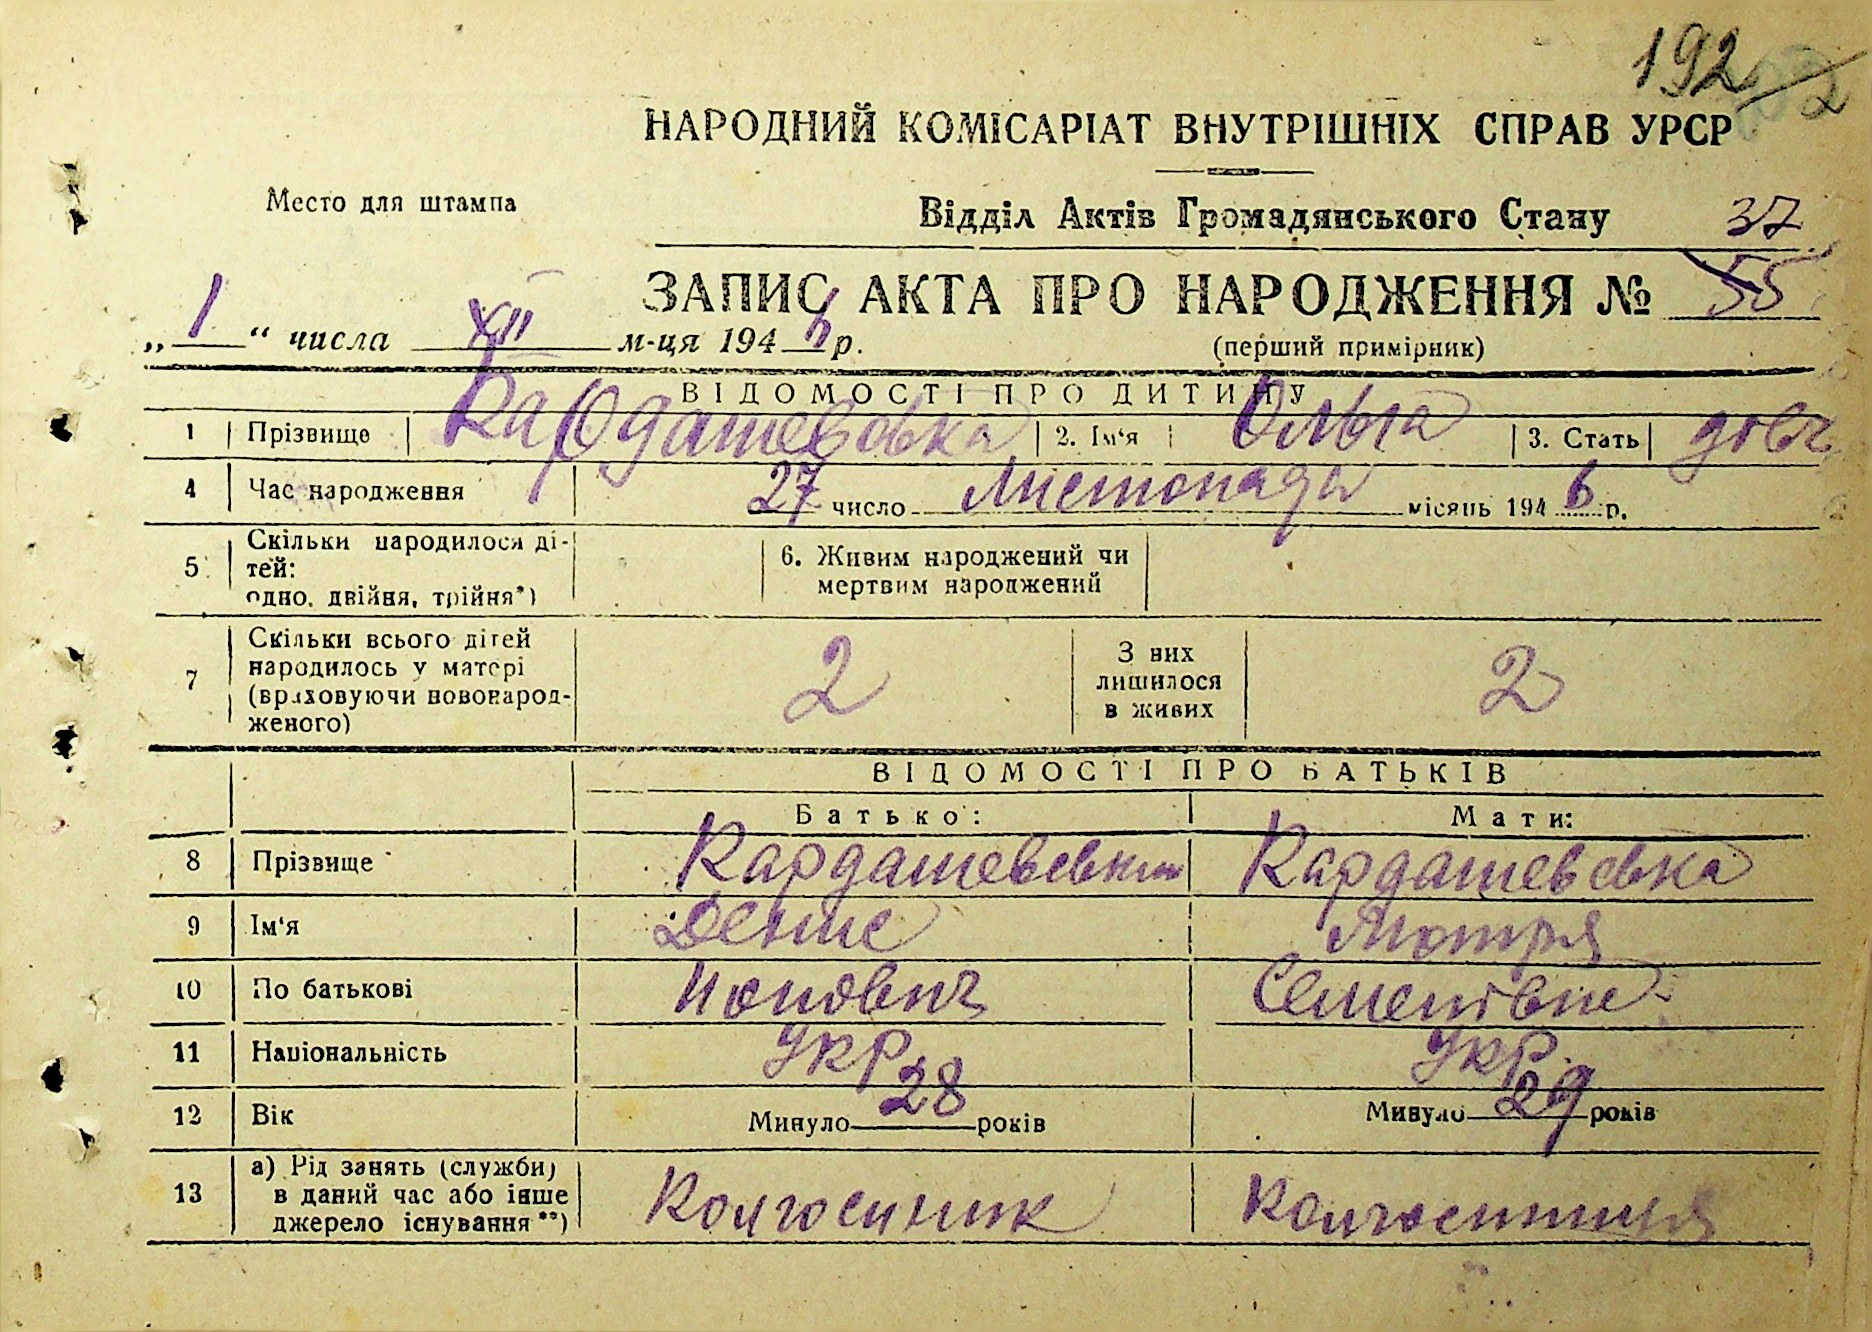 192
НАРОДНИЙ КОМІСАРІАТ ВНУТРІШНІХ СПРАВ УРСР
Место для штампа
Відділ Актів Громадянського Стану 37
ЗАПИС АКТА ПРО НАРОДЖЕННЯ № 55
„ 1 “ числа XII м-ця 1946 р.
(перший примірник)
ВІДОМОСТІ ПРО ДИТИНУ
1 Прізвище Кардашевська 2. Ім‘я Ольга 3. Стать дівч
4 Час народження 27 число Листопада місяць 1946 р.
5 Скільки народилося ді-
тей:
одно, двійня, трійня*)
6. Живим народжений чи
мертвим народжений
7 Скільки всього дітей
народилось у матері
(враховуючи новонарод-
женого)
2
З них
лишилося
в живих
2
ВІДОМОСТІ ПРО БАТЬКІВ
Батько: Мати:
8 Прізвище Кардашевський Кардашевська
9 Ім‘я Денис Мотря
10 По батькові Семенівне
11 Національність УКР УКР.
12 Вік Минуло 28 років Минуло 29 років
13 а) Рід занять (служби)
в даний час або інше
джерело існування**)
Колгоспник Колгоспниця